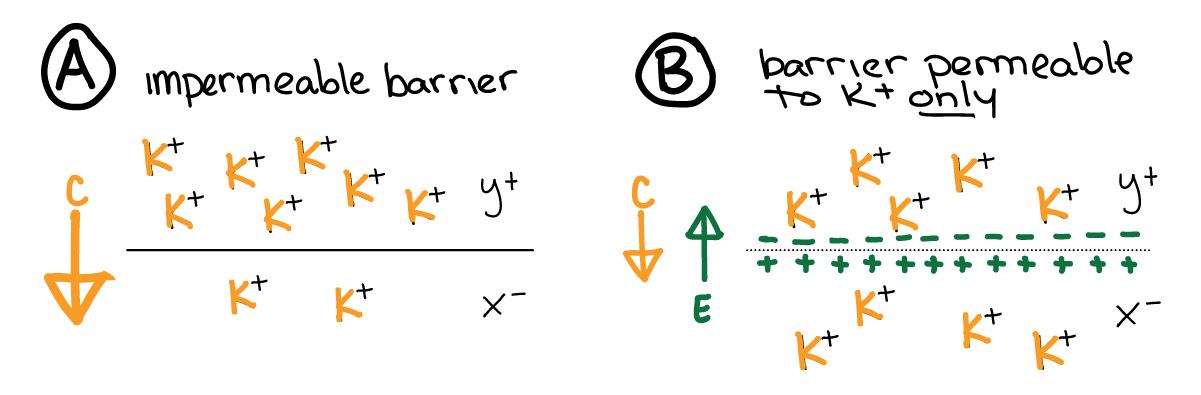 A
impermeable barrier
K+ K+ K+
K+ K+ K+ K+
C
y+
K+ K+
x-
B
barrier permeable
to K+ only
K+ K+
K+ K+ K+
C
y+
- - - - - - - - - - - -
+ + + + + + + + + + +
E
K+ K+
K+ K+
x-